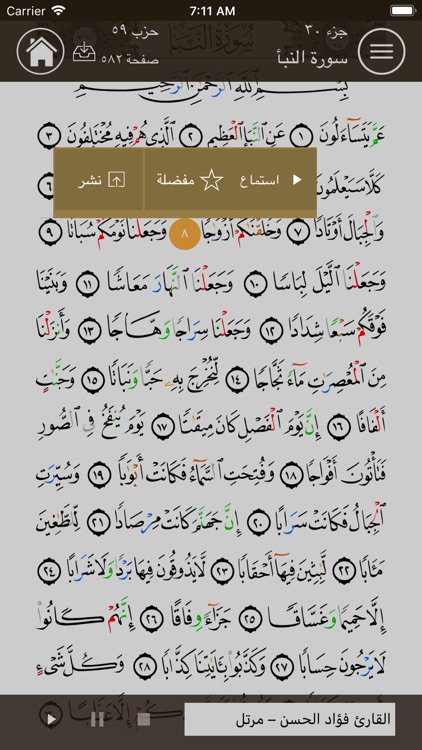 Carrier 7:11 AM
جزء ٣٠
حزب ٥٩
سورة النبأ
صفحة ٥٨٢
سُورَةُ النَّبَإِ
بِسْمِ ٱللَّهِ ٱلرَّحْمَٰنِ ٱلرَّحِيمِ
عَمَّ يَتَسَآءَلُونَ ١ عَنِ ٱلنَّبَإِ ٱلْعَظِيمِ ٢ ٱلَّذِى هُمْ فِيهِ مُخْتَلِفُونَ ٣
كَلَّا سَيَعْلَمُونَ ٦
استماع
مفضلة
نشر
وَٱلْجِبَالَ أَوْتَادًا ٧ وَخَلَقْنَٰكُمْ أَزْوَٰجًا ٨ وَجَعَلْنَا نَوْمَكُمْ سُبَاتًا ٩
وَجَعَلْنَا ٱلَّيْلَ لِبَاسًا ١٠ وَجَعَلْنَا ٱلنَّهَارَ مَعَاشًا ١١ وَبَنَيْنَا
فَوْقَكُمْ سَبْعًا شِدَادًا ١٢ وَجَعَلْنَا سِرَاجًا وَهَّاجًا ١٣ وَأَنزَلْنَا
مِنَ ٱلْمُعْصِرَٰتِ مَآءً ثَجَّاجًا ١٤ لِّنُخْرِجَ بِهِۦ حَبًّا وَنَبَاتًا ١٥ وَجَنَّٰتٍ
أَلْفَافًا ١٦ إِنَّ يَوْمَ ٱلْفَصْلِ كَانَ مِيقَٰتًا ١٧ يَوْمَ يُنفَخُ فِى ٱلصُّورِ
فَتَأْتُونَ أَفْوَاجًا ١٨ وَفُتِحَتِ ٱلسَّمَآءُ فَكَانَتْ أَبْوَٰبًا ١٩ وَسُيِّرَتِ
ٱلْجِبَالُ فَكَانَتْ سَرَابًا ٢٠ إِنَّ جَهَنَّمَ كَانَتْ مِرْصَادًا ٢١ لِّلطَّٰغِينَ
مَـَٔابًا ٢٢ لَّٰبِثِينَ فِيهَآ أَحْقَابًا ٢٣ لَّا يَذُوقُونَ فِيهَا بَرْدًا وَلَا شَرَابًا ٢٤
إِلَّا حَمِيمًا وَغَسَّاقًا ٢٥ جَزَآءً وِفَاقًا ٢٦ إِنَّهُمْ كَانُوا۟
لَا يَرْجُونَ حِسَابًا ٢٧ وَكَذَّبُوا۟ بِـَٔايَٰتِنَا كِذَّابًا ٢٨ وَكُلَّ شَىْءٍ
القارئ فؤاد الحسن – مرتل